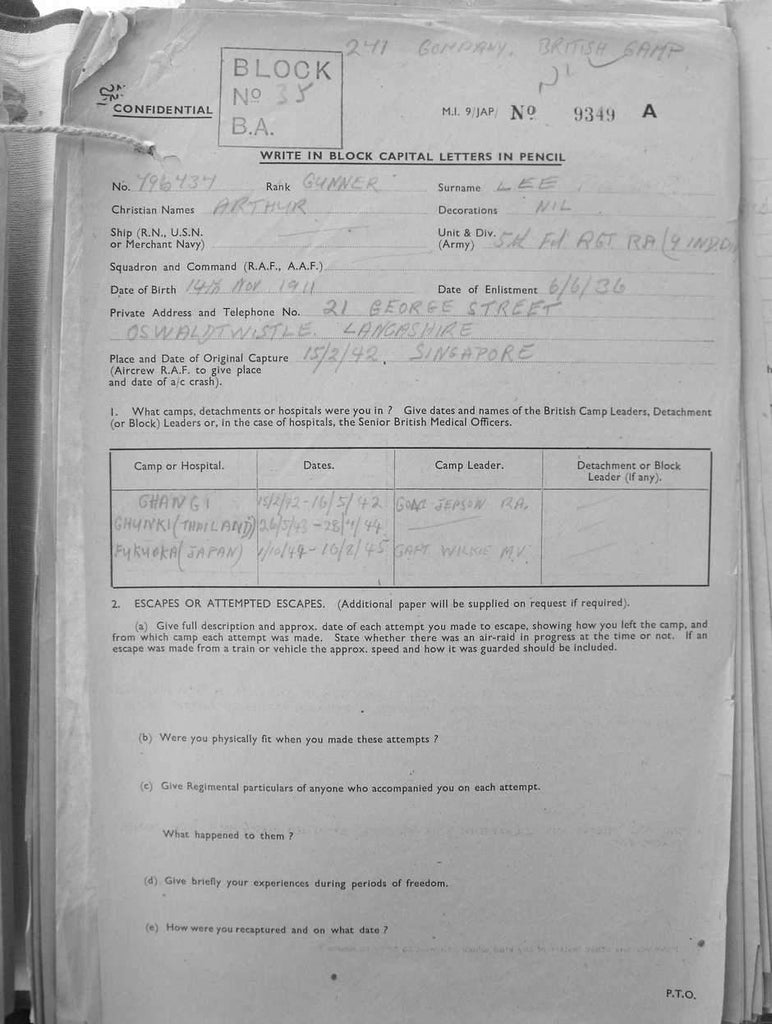 241 COMPANY. BRITISH CAMP
BLOCK
No 38
B.A.
CONFIDENTIAL
M.I. 9/JAP/ No 9349 A
WRITE IN BLOCK CAPITAL LETTERS IN PENCIL
No. 796437 Rank GUNNER Surname LEE
Christian Names ARTHUR Decorations NIL
Ship (R.N., U.S.N.
or Merchant Navy)
Unit & Div.
(Army) 5th Fd RGT RA (9 IND.D
Squadron and Command (R.A.F., A.A.F.)
Date of Birth 14th Nov 1911 Date of Enlistment 6/6/36
Private Address and Telephone No. 21 GEORGE STREET
OSWALDTWISTLE. LANCASHIRE
Place and Date of Original Capture 15/2/42. SINGAPORE
(Aircrew R.A.F. to give place
and date of a/c crash).
1. What camps, detachments or hospitals were you in ? Give dates and names of the British Camp Leaders, Detachment
(or Block) Leaders or, in the case of hospitals, the Senior British Medical Officers.
Camp or Hospital. Dates. Camp Leader. Detachment or Block
Leader (if any).
CHANGI 15/2/42-16/5/42 JEPSON RA.
CHUNKI (THAILAND) 26/5/43-28/4/44
FUKUOKA (JAPAN) 1/10/44-16/8/45 CAPT WILKIE M.V.
2. ESCAPES OR ATTEMPTED ESCAPES. (Additional paper will be supplied on request if required).
(a) Give full description and approx. date of each attempt you made to escape, showing how you left the camp, and
from which camp each attempt was made. State whether there was an air-raid in progress at the time or not. If an
escape was made from a train or vehicle the approx. speed and how it was guarded should be included.
(b) Were you physically fit when you made these attempts ?
(c) Give Regimental particulars of anyone who accompanied you on each attempt.
What happened to them ?
(d) Give briefly your experiences during periods of freedom.
(e) How were you recaptured and on what date ?
P.T.O.